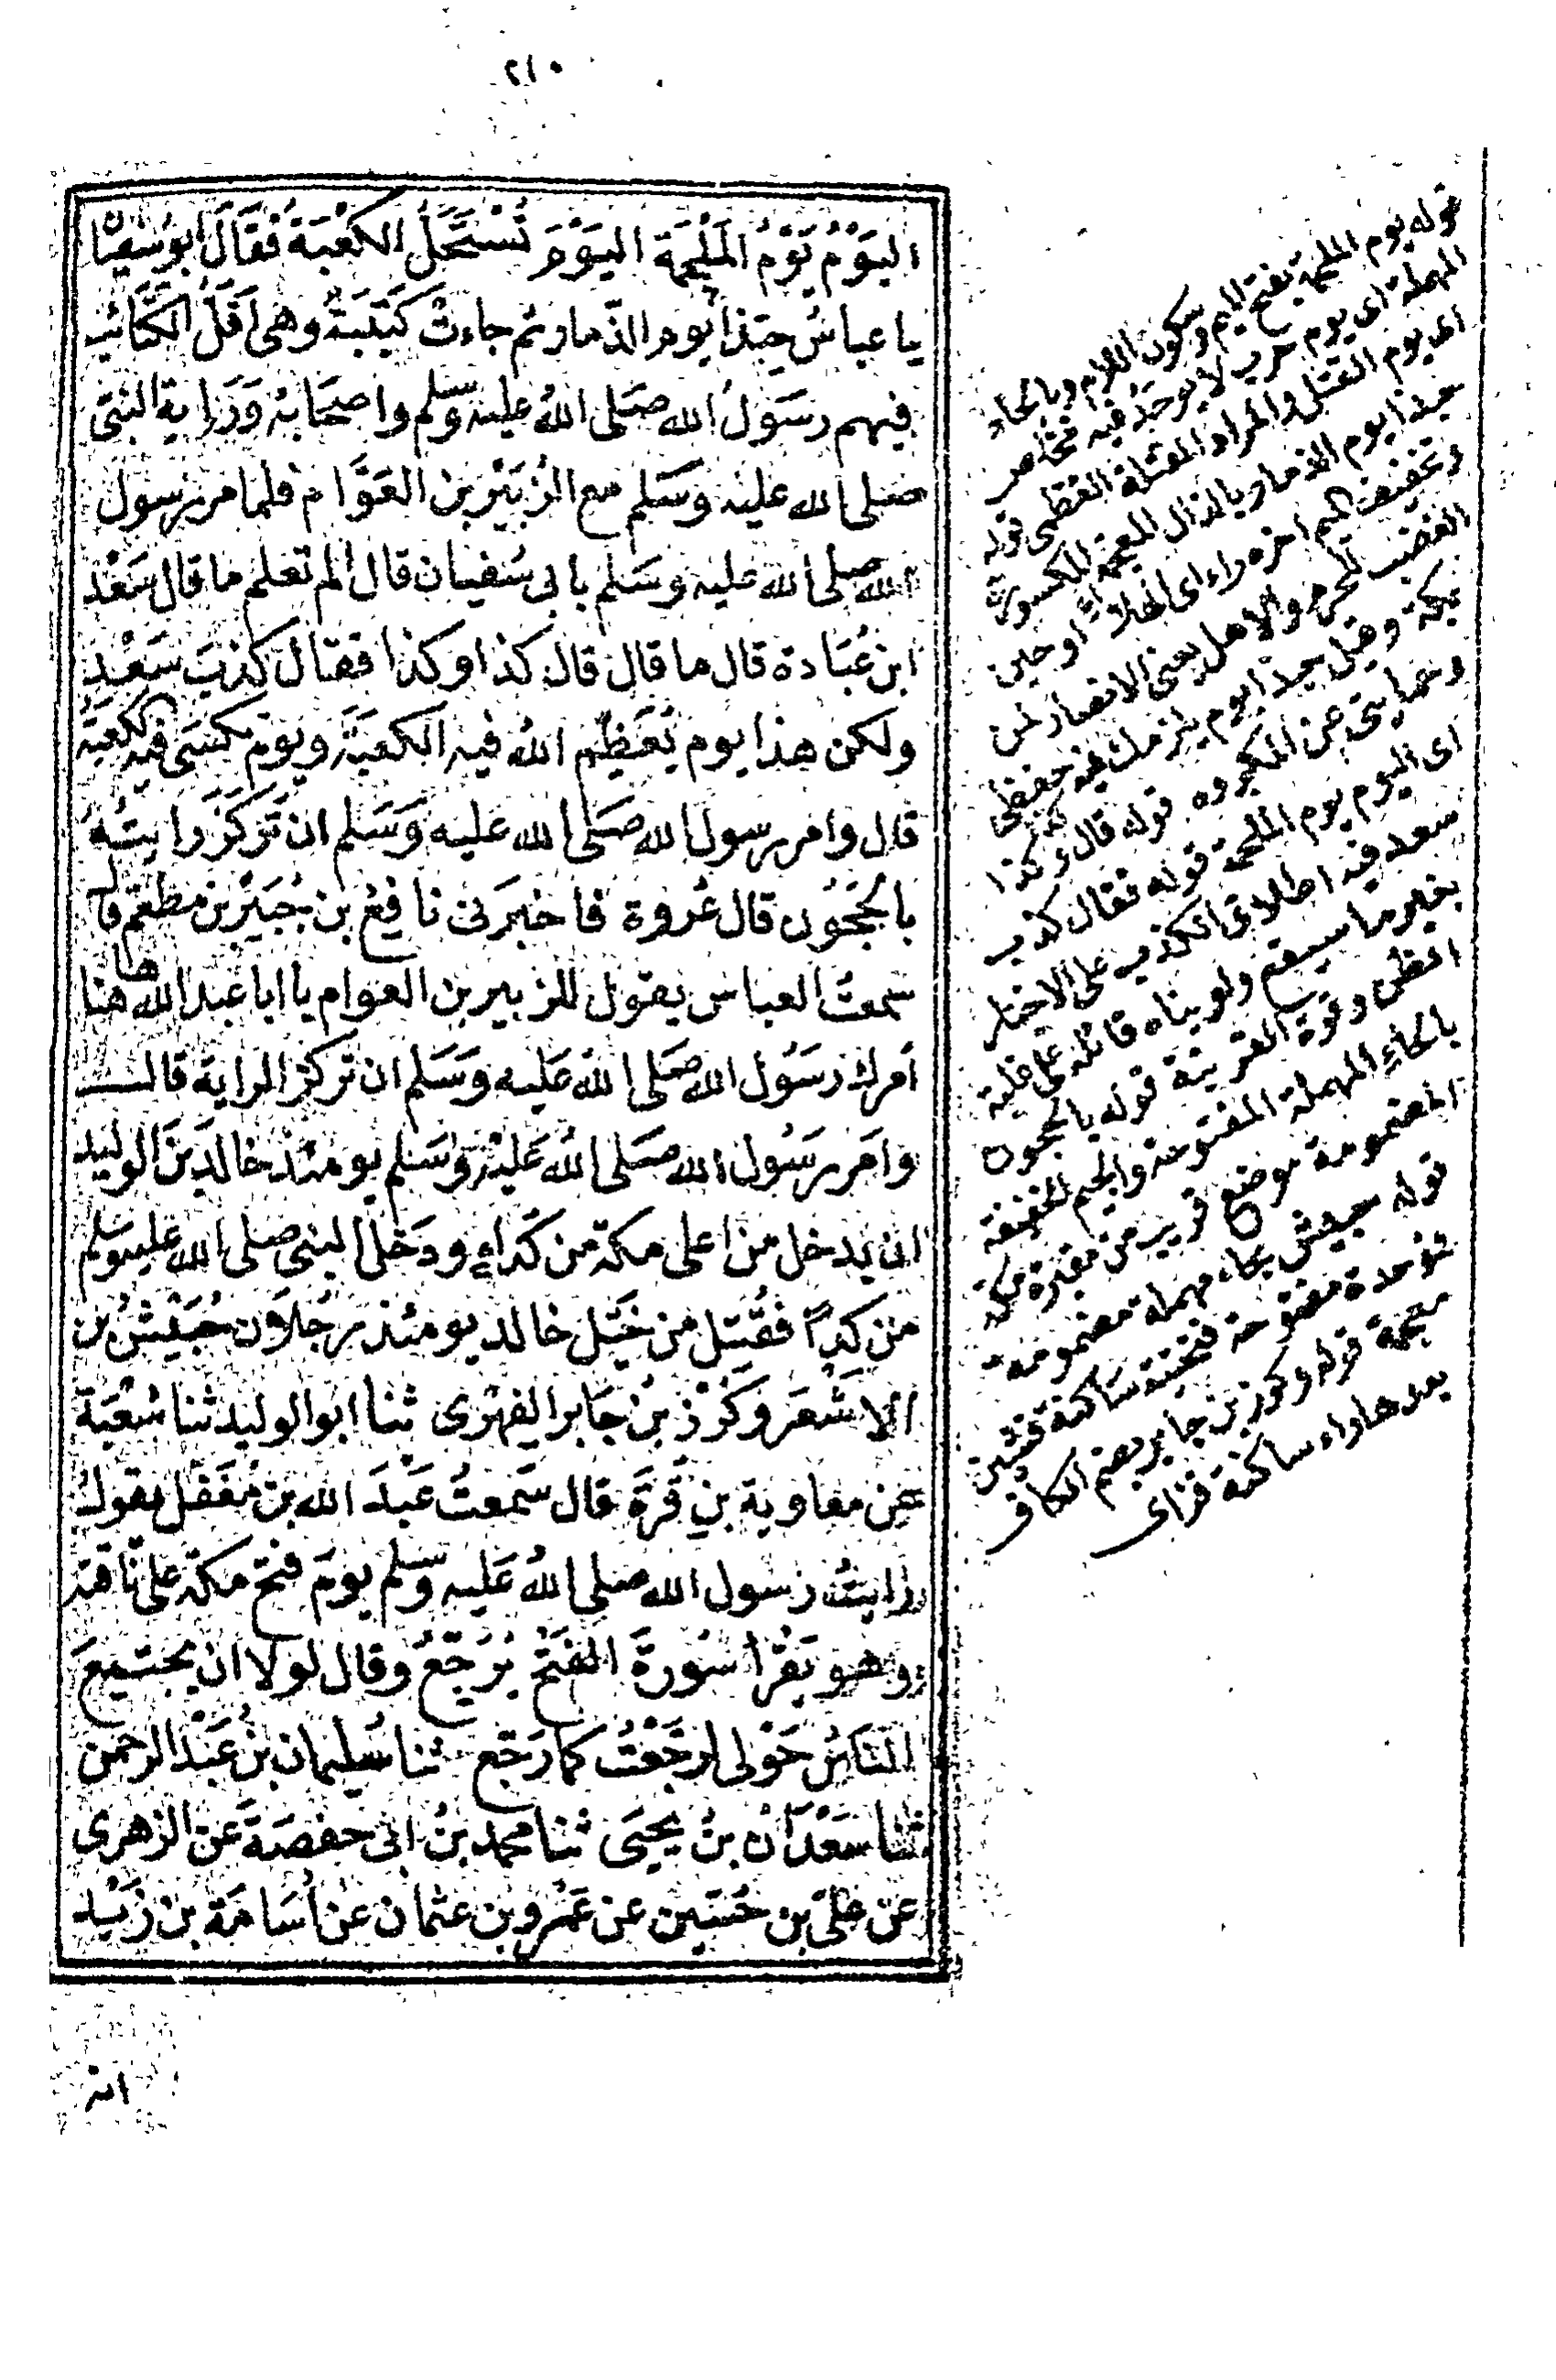 ٢١٠
اليَوْمُ يَوْمُ المَلْحَمَة اليَوْمَ تُسْتَحَلُّ الكَعْبَةُ فَقَالَ ابوسُفيَان
يا عباسُ حبّذا يوم الذّمار ثم جاءتْ كَتِيْبَةٌ وهى اَقَلُّ الكتَائِب
فيهم رسَوُلُ الله صَلى اللهُ عليه وسلم واصحَابُه وَرَايةُ النبىّ
صلى الله عليه وَسَلم مع الزُبَيْر بن العَوَّام فلما مر رسول
الله صلى الله عليه وسَلم بابى سُفيان قال الم تعلم ما قال سَعْد
ابن عُبَادة قال ما قال قال كذا وكذا فقال كذبَ سَعْد
ولكن هذا يوم يُعَظِّم اللهُ فيه الكعبَةَ ويَوْم تُكسَى فيه الكعبَةُ
قال وامر رسول الله صَلى الله عليه وَسَلم ان تُركَزَ رايتُه
بالحَجُون قال عُروة فاخبرنى نافِعُ بن جُبَيْر بن مطْعِم قال
سمعتُ العباس يقول للزبير بن العوام يا ابا عبد الله هاهنا
اَمرك رسَوُل الله صَلى اللهُ عَليه وَسَلم ان تركز الراية قال
وامَر رسَوُل الله صَلى اللهُ عَلَيْه وَسَلم يومئذ خالدَ بنَ الوليد
ان يدخل من اعلى مكة من كَدَاءٍ ودَخل النبى صلى الله عليه وسلم
من كُدًا فقُتِل من خَيْل خالد يومئذ رجُلاَن حُبَيْشُ بن
الاَشْعَر وَكُرْزُ بنُ جَابر الفِهْرى ثنا ابو الوليد ثنا شعْبَة
عن معاوية بنِ قُرَّة قال سَمعتُ عَبدَ الله بن مُغَفَّل يقول
رايتُ رسول الله صلى اللهُ عَليه وسلم يومَ فتح مكة على ناقته
وهو يَقْرأ سُورةَ الفَتْح يُرَجِّعُ وقال لولا ان يجتمِعَ
النَاسُ حَوْلى لرجَّعْتُ كما رَجّع ثنا سُليمان بنُ عَبْد الرحمن
ثنا سَعْدَانُ بنُ يحيَى ثنا محمد بنُ ابى حفصَة عن الزهرى
عن عَلىّ بن حُسَين عن عَمْرو بن عثمان عن اُسَامَة بن زَيْد
انه
قوله يوم الملحمة بفتح الميم وسكون اللام وبالحاء
المهملة اى يوم حرب لا يوجد فيه مخلص
او يوم القتل والمراد المقتلة العظمى قوله
حبذا يوم الذمار بالذال المعجمة المكسورة
وتخفيف الميم اخره راء اى الهلاك او حين
الغضب للحرم والاهل يعنى الانتصار لمن
بمكة وقيل حبذا يوم يلزمك فيه حفظى
وحمايتى عن المكروه قوله قال كذا وكذا
اى اليوم يوم الملحمة قوله فقال كذب
سعد فيه اطلاق الكذب على الاخبار
بغير ما سيقع ولو بناه قائله على غلبة
الظن وقوة القرينة قوله بالحجون
بالحاء المهملة المفتوحة والجيم المخففة
المضمومة موضع قريب من مقبرة مكة
قوله حبيش بحاء مهملة مضمومة
فموحدة مفتوحة فتحتية ساكنة فشين
معجمة قوله وكرز بن جابر بضم الكاف
بعدها راء ساكنة فزاى